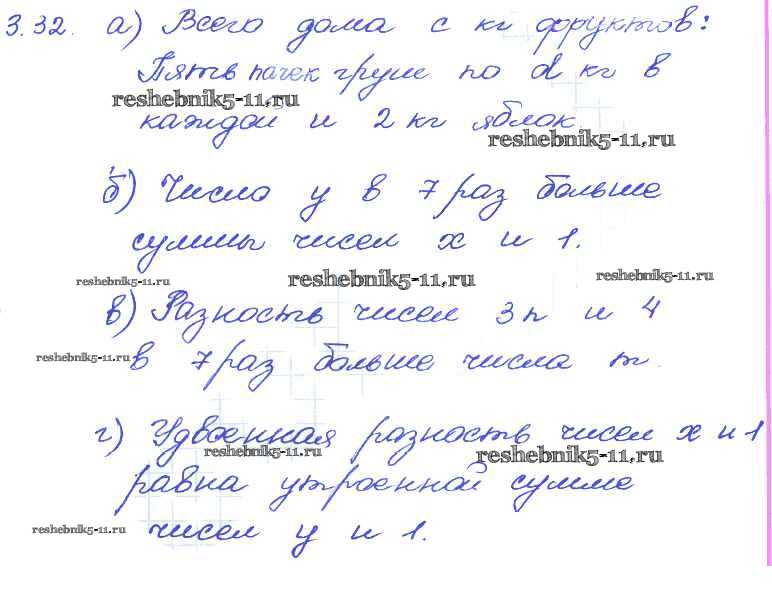 3.32. а) Всего дома с кг фруктов:
Пять пачек груш по d кг в
reshebnik5-11.ru
каждой и 2 кг яблок.
reshebnik5-11.ru
б) Число y в 7 раз больше
суммы чисел x и 1.
reshebnik5-11.ru reshebnik5-11.ru reshebnik5-11.ru
в) Разность чисел 3n и 4
reshebnik5-11.ru
в 7 раз больше числа m.
г) Удвоенная разность чисел x и 1
reshebnik5-11.ru reshebnik5-11.ru
равна утроенной сумме
reshebnik5-11.ru
чисел y и 1.